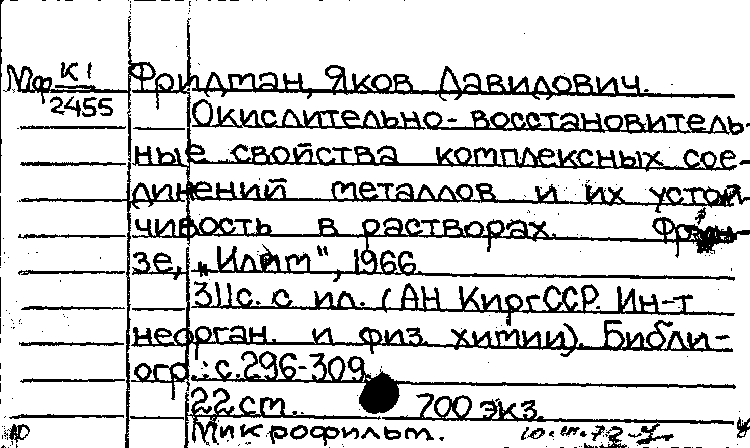 Мф К1
2455
Фридман, Яков Давидович.
Окислительно-восстановитель-
ные свойства комплексных сое-
динений металлов и их устой-
чивость в растворах. Фрун-
зе, „Илим", 1966
311с. с ил. (АН КиргССР. Ин-т
неорган. и физ. химии). Библи-
огр.: с.296-309.
22 см. 700 экз.
Микрофильм.